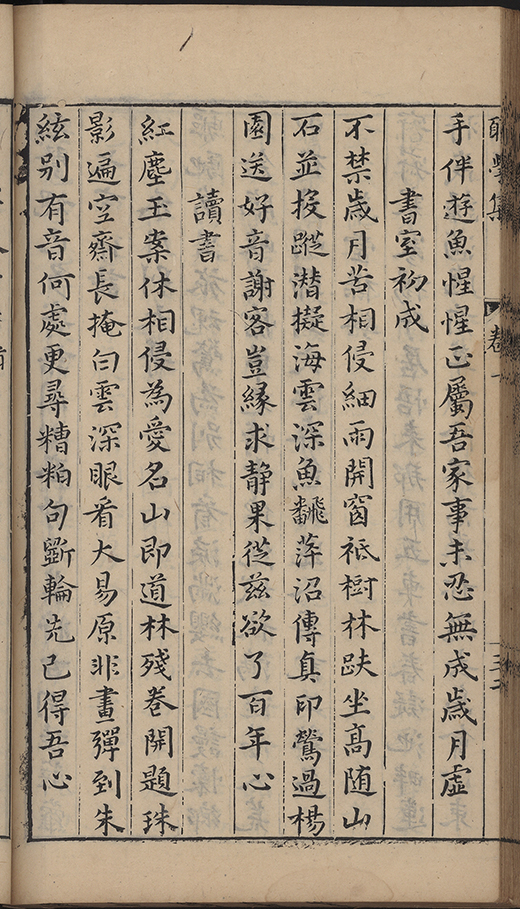 卷一
手伴遊魚惺惺正屬吾家事未忍無成歲月虛
書室初成
不禁歲月苦相侵細雨開窗祗樹林趺坐高随山
石並投蹤潛擬海雲深魚飜萍沼傳真印鶯過楊
園送好音謝客豈緣求静果從茲欲了百年心
讀書
紅塵玉案休相侵為愛名山即道林殘卷開題珠
影遍空齋長掩白雲深眼看大易原非畫彈到朱
絃别有音何處更尋糟粕句斵輪先已得吾心